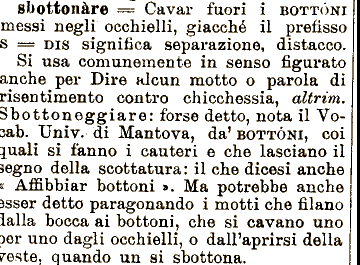 sbottonàre = Cavar fuori i BOTTÓNI
messi negli occhielli, giacché il prefisso
S = DIS significa separazione, distacco.
Si usa comunemente in senso figurato
anche per Dire alcun motto o parola di
risentimento contro chicchessia, altrim.
Sbottoneggiare: forse detto, nota il Vo-
cab. Univ. di Mantova, da' BOTTÓNI, coi
quali si fanno i cauteri e che lasciano il
segno della scottatura: il che dicesi anche
« Affibbiar bottoni ». Ma potrebbe anche
esser detto paragonando i motti che filano
dalla bocca ai bottoni, che si cavano uno
per uno dagli occhielli, o dall'aprirsi della
veste, quando un si sbottona.